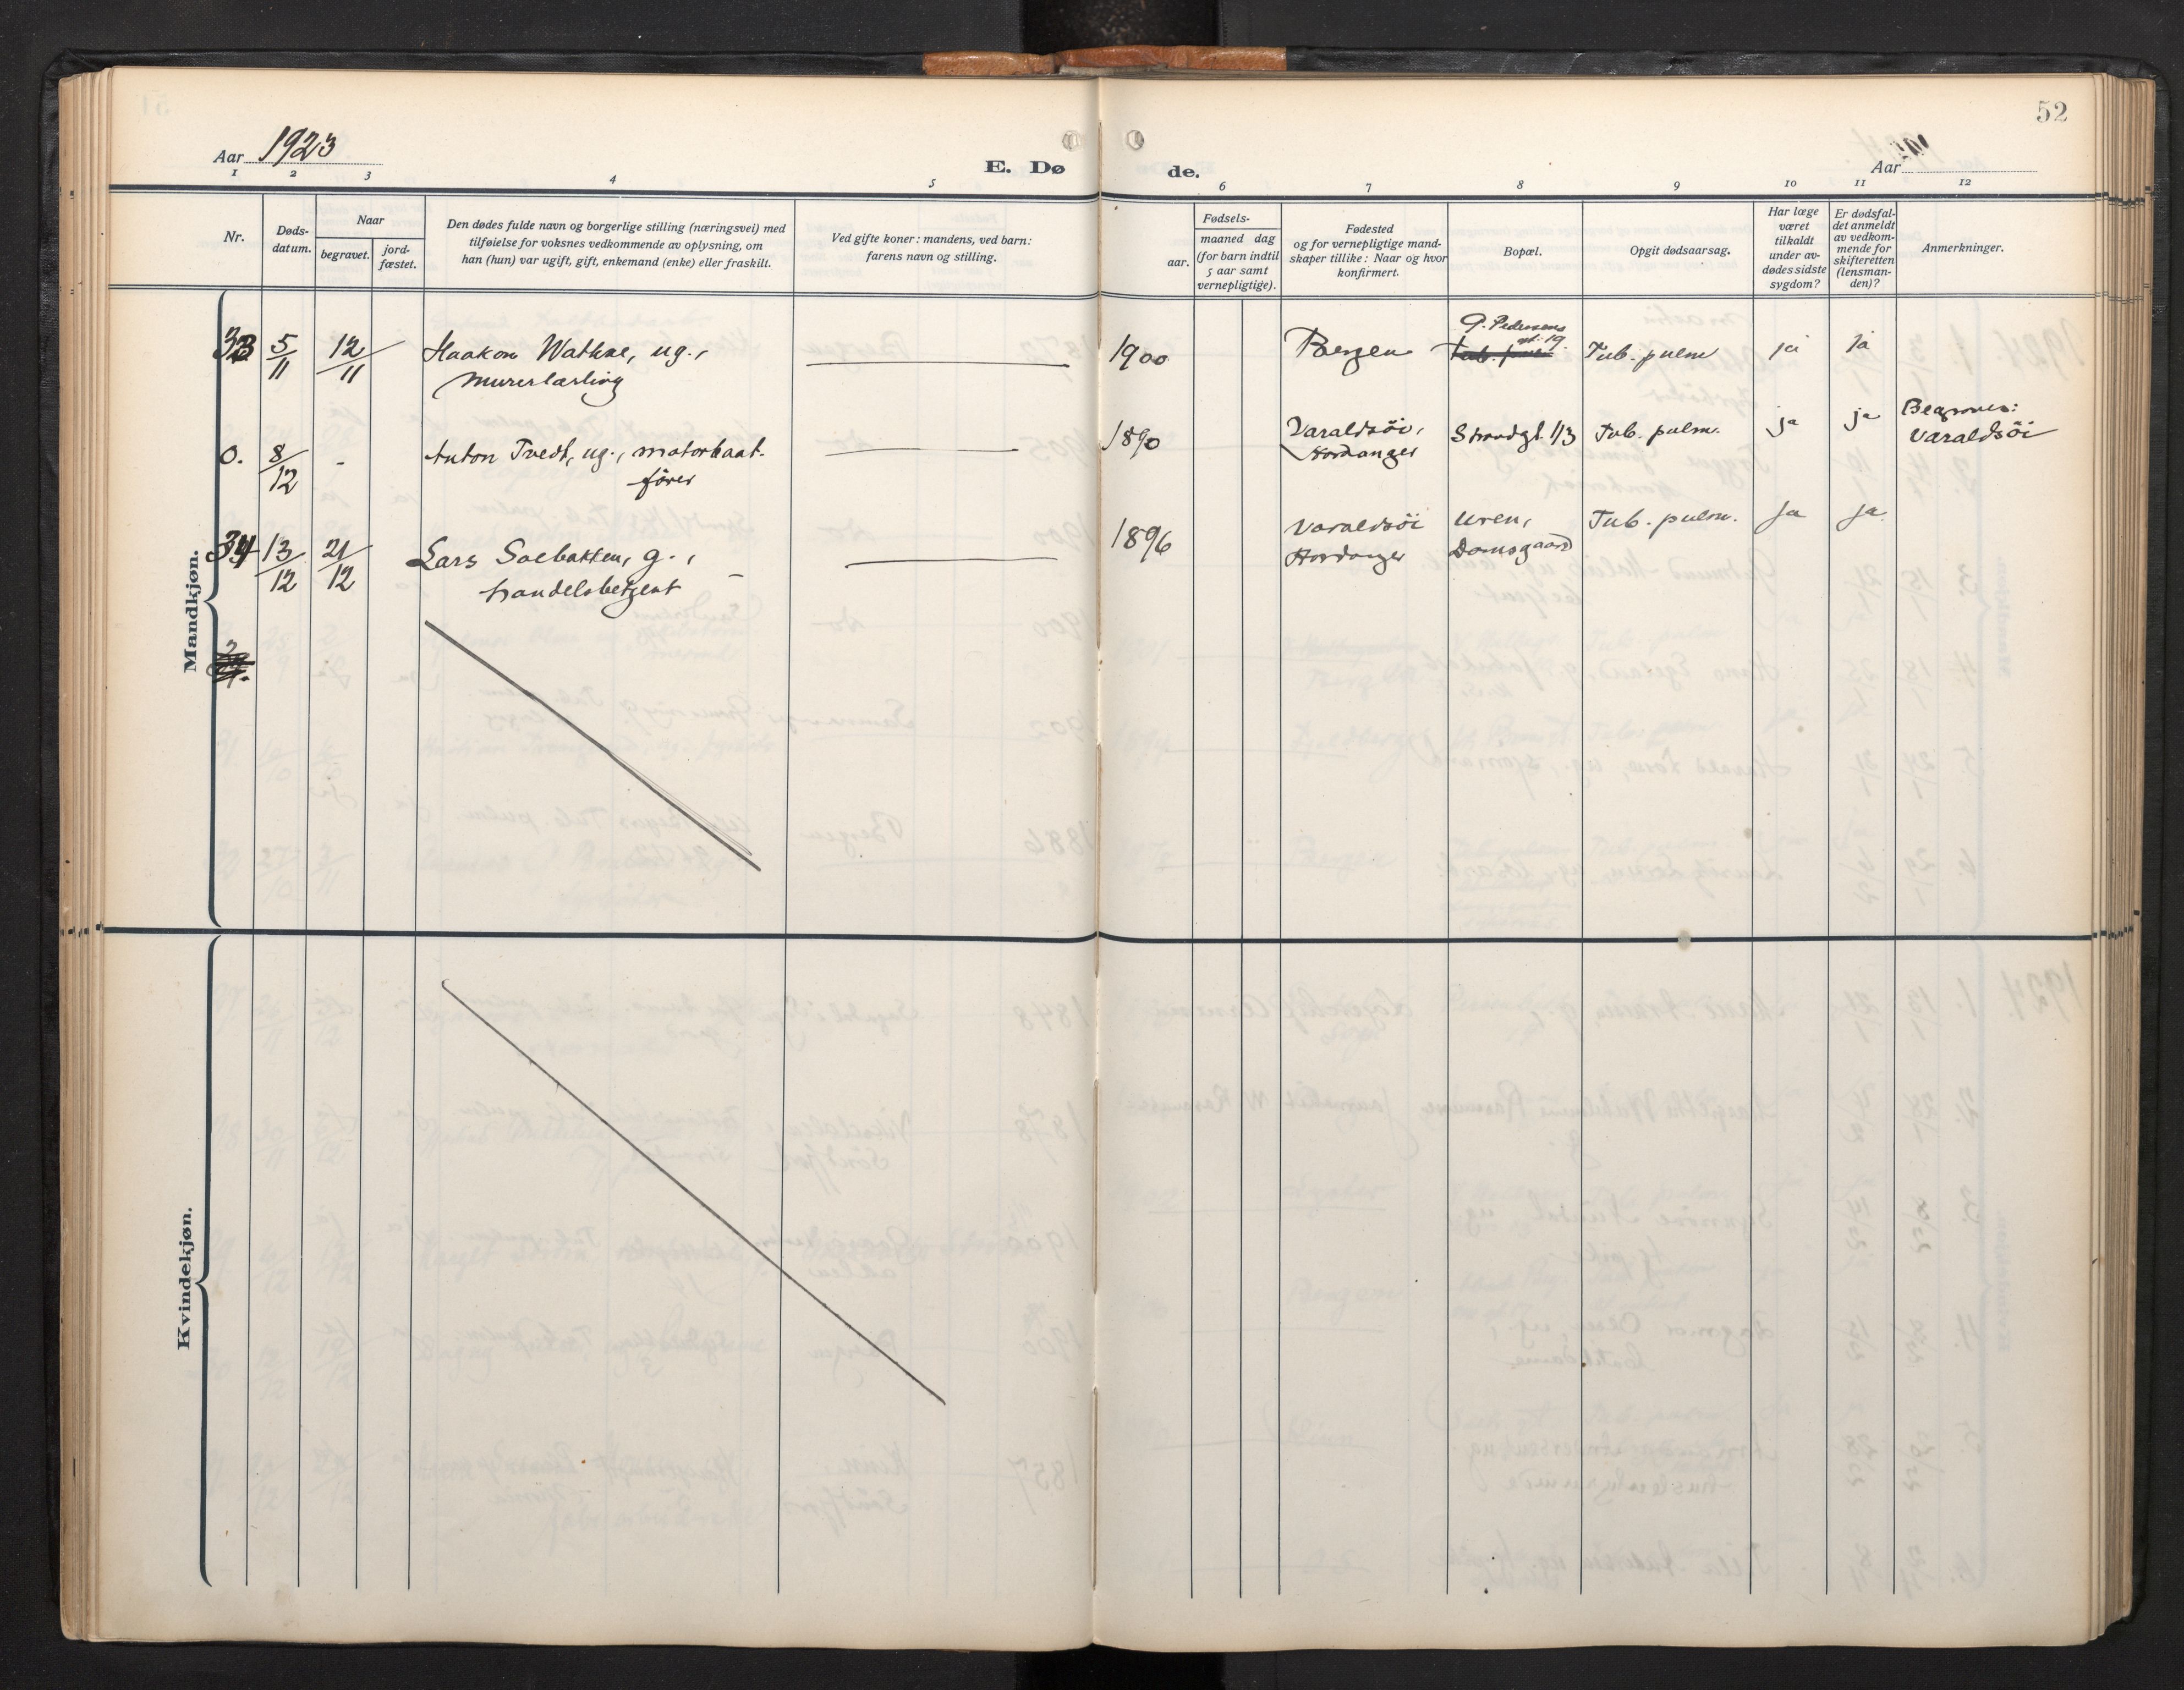 52
Aar 1923
E. Dø
de.
Aar
1 2 3 4 5 6 7 8 9 10 11 12
Nr.
Døds-
datum.
Naar
begravet.
jord-
fæstet.
Den dødes fulde navn og borgerlige stilling (næringsvei) med
tilføielse for voksnes vedkommende av oplysning, om
han (hun) var ugift, gift, enkemand (enke) eller fraskilt.
Ved gifte koner: mandens, ved barn:
farens navn og stilling.
Fødsels-
aar.
maaned dag
(for barn indtil
5 aar samt
vernepligtige).
Fødested
og for vernepligtige mand-
skaper tillike: Naar og hvor
konfirmert.
Bopæl.
Opgit dødsaarsag.
Har læge
været
tilkaldt
under av-
dødes sidste
sygdom?
Er dødsfal-
det anmeldt
av vedkom-
mende for
skifteretten
(lensman-
den)?
Anmerkninger.
Mandkjøn.
33 5/11 12/11 Haakon Wathne, ug., 1900 Bergen P. Pedersens
gt. 19. Tub. pulm ja ja
murerlærling
0. 8/12 - Anton Tvedt, ug., motorbaat- 1890 Varaldsöi, Strandgt. 113 Tub. pulm. ja ja Begraves:
fører Hardanger Varaldsöi
34 13/12 21/12 Lars Solbakken, g., 1896 Varaldsöi Uren, Tub. pulm. ja ja
handelsbetjent - Hardanger Damsgaard
Kvindekjøn.